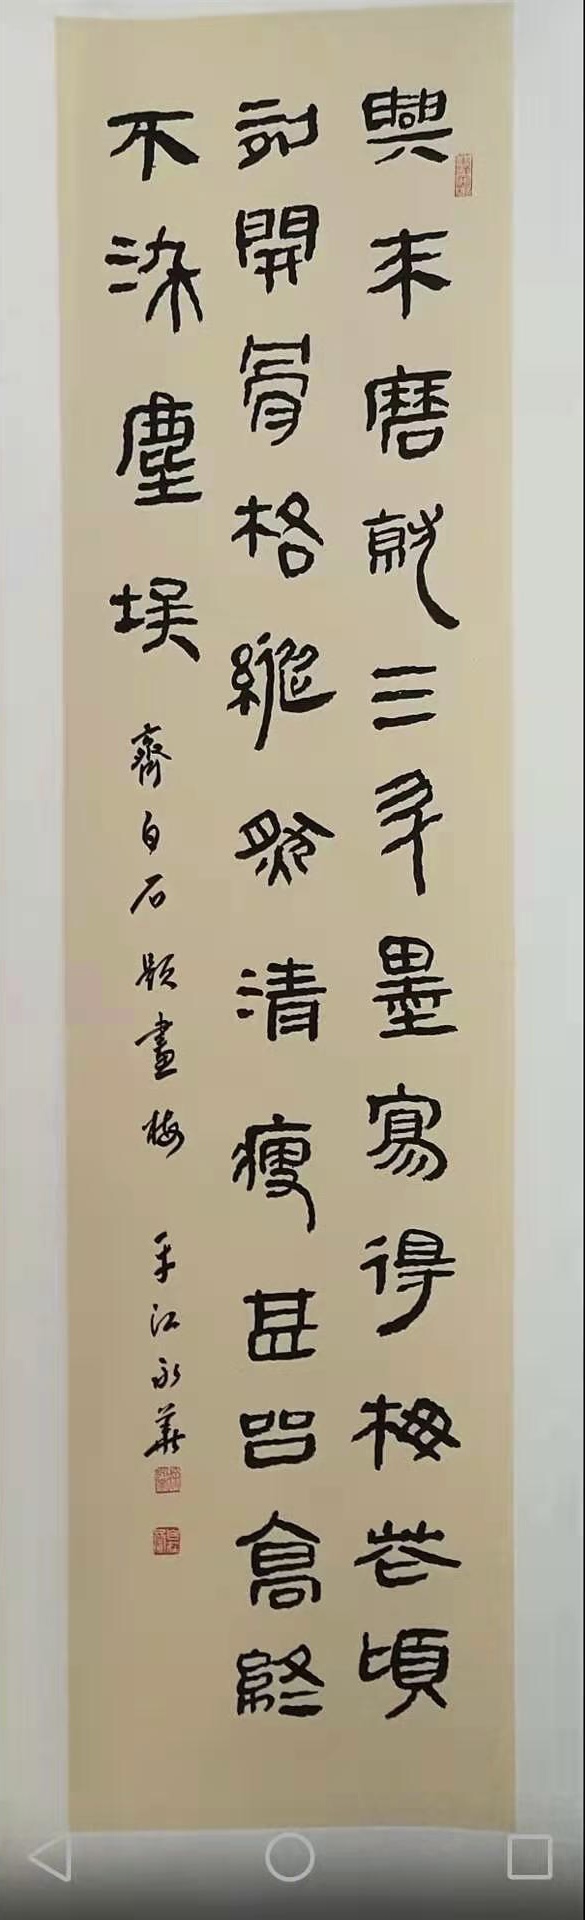 興来磨就三升墨寫得梅花頃
刻開骨格縱然清瘦甚品高終
不染塵埃 齊白石題畫梅 平江永華